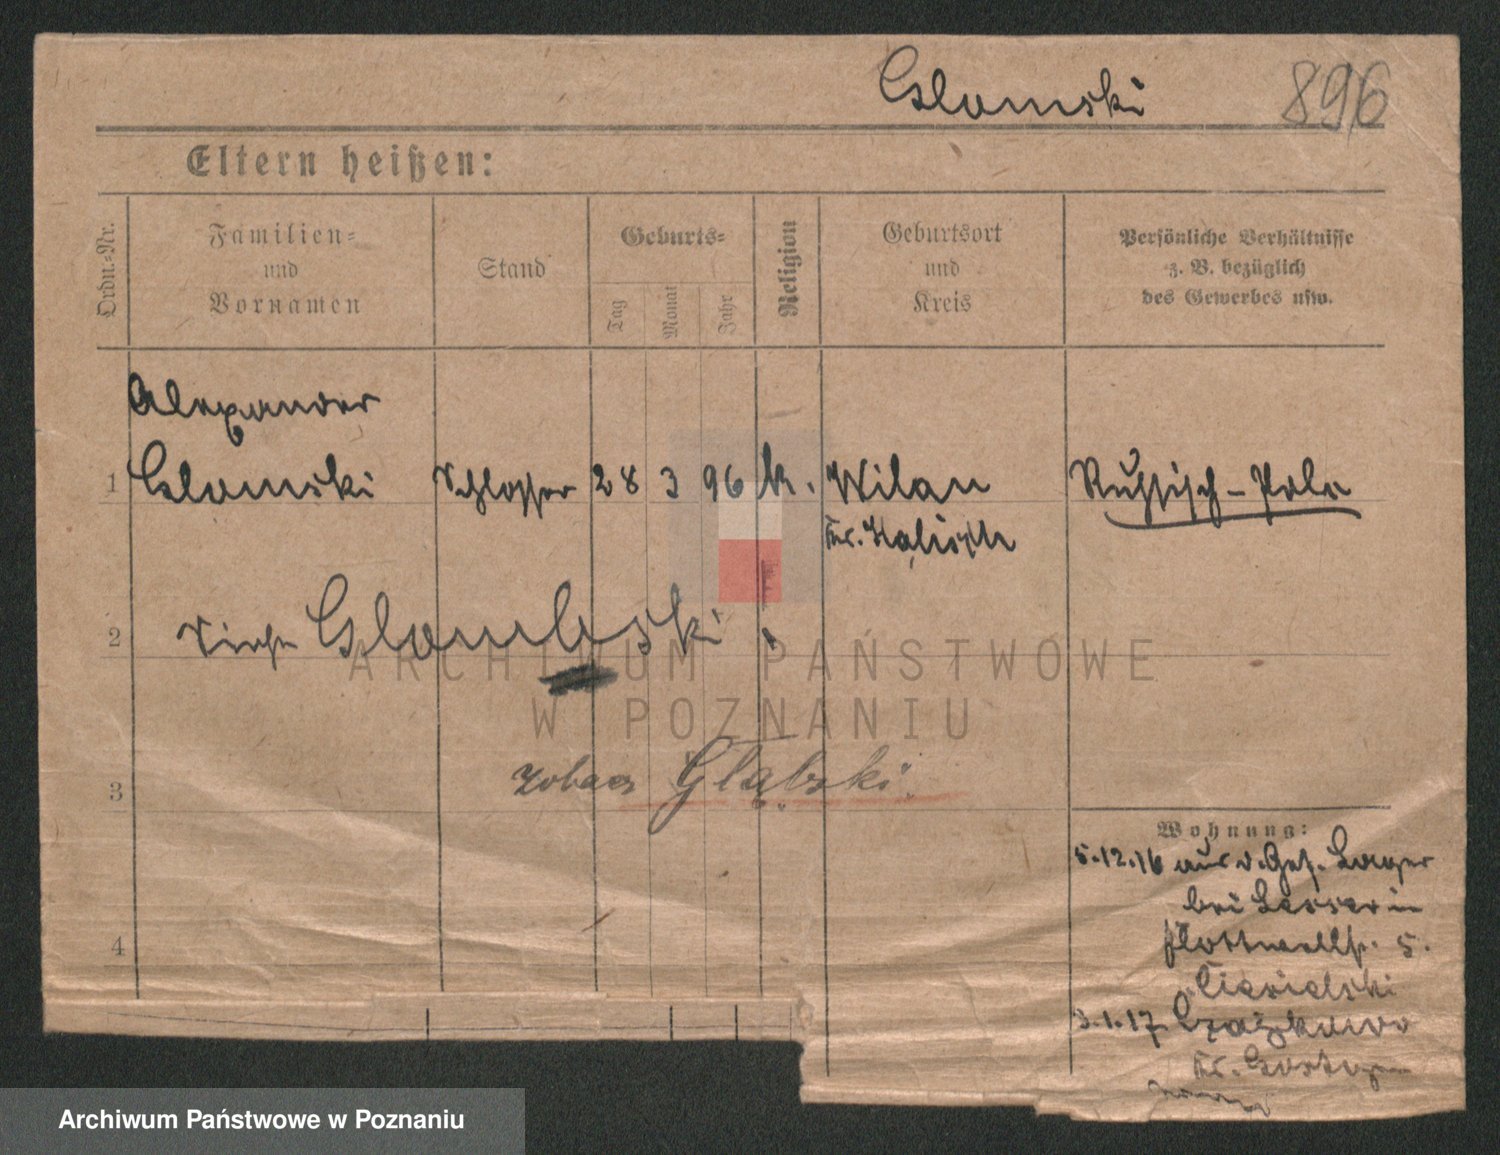 Glomski 896
Eltern heißen:
Ordn.-Nr.
Familien-
und
Vornamen
Stand
Geburts-
Tag
Monat
Jahr
Religion
Geburtsort
und
Kreis
Persönliche Verhältnisse
z. B. bezüglich
des Gewerbes usw.
Alexander
1 Glomski Schlosser 28 3 96 k. Wilan Russisch-Pole
Kr. Kalisch
2 Siehe Glombski!
ARCHIWUM PAŃSTWOWE
W POZNANIU
3 zobacz Głąbski
Wohnung:
5.12.16 aus d. Gef. Lager
bei Lesser in
Flottwellstr. 5.
4
Ciesielski
3.1.17
Kr. Gostyn
Archiwum Państwowe w Poznaniu